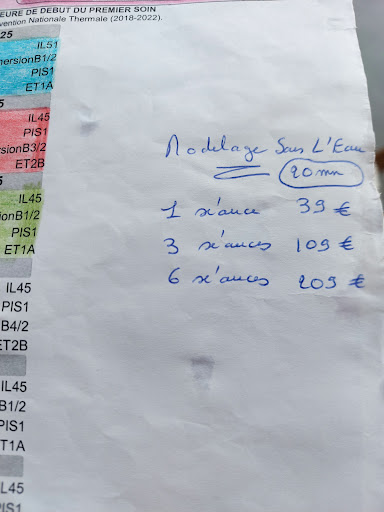 EURE DE DEBUT DU PREMIER SOIN
vention Nationale Thermale (2018-2022).
25
IL51
mersionB1/2
PIS1
ET1A
5
IL45
PIS1
rsionB3/2
ET2B
5
IL45
ionB1/2
PIS1
ET1A
IL45
PIS1
B4/2
ET2B
IL45
B1/2
PIS1
T1A
IL45
PIS1
Modelage Sous L'Eau
20mn
1 séance 39 €
3 séances 109 €
6 séances 209 €